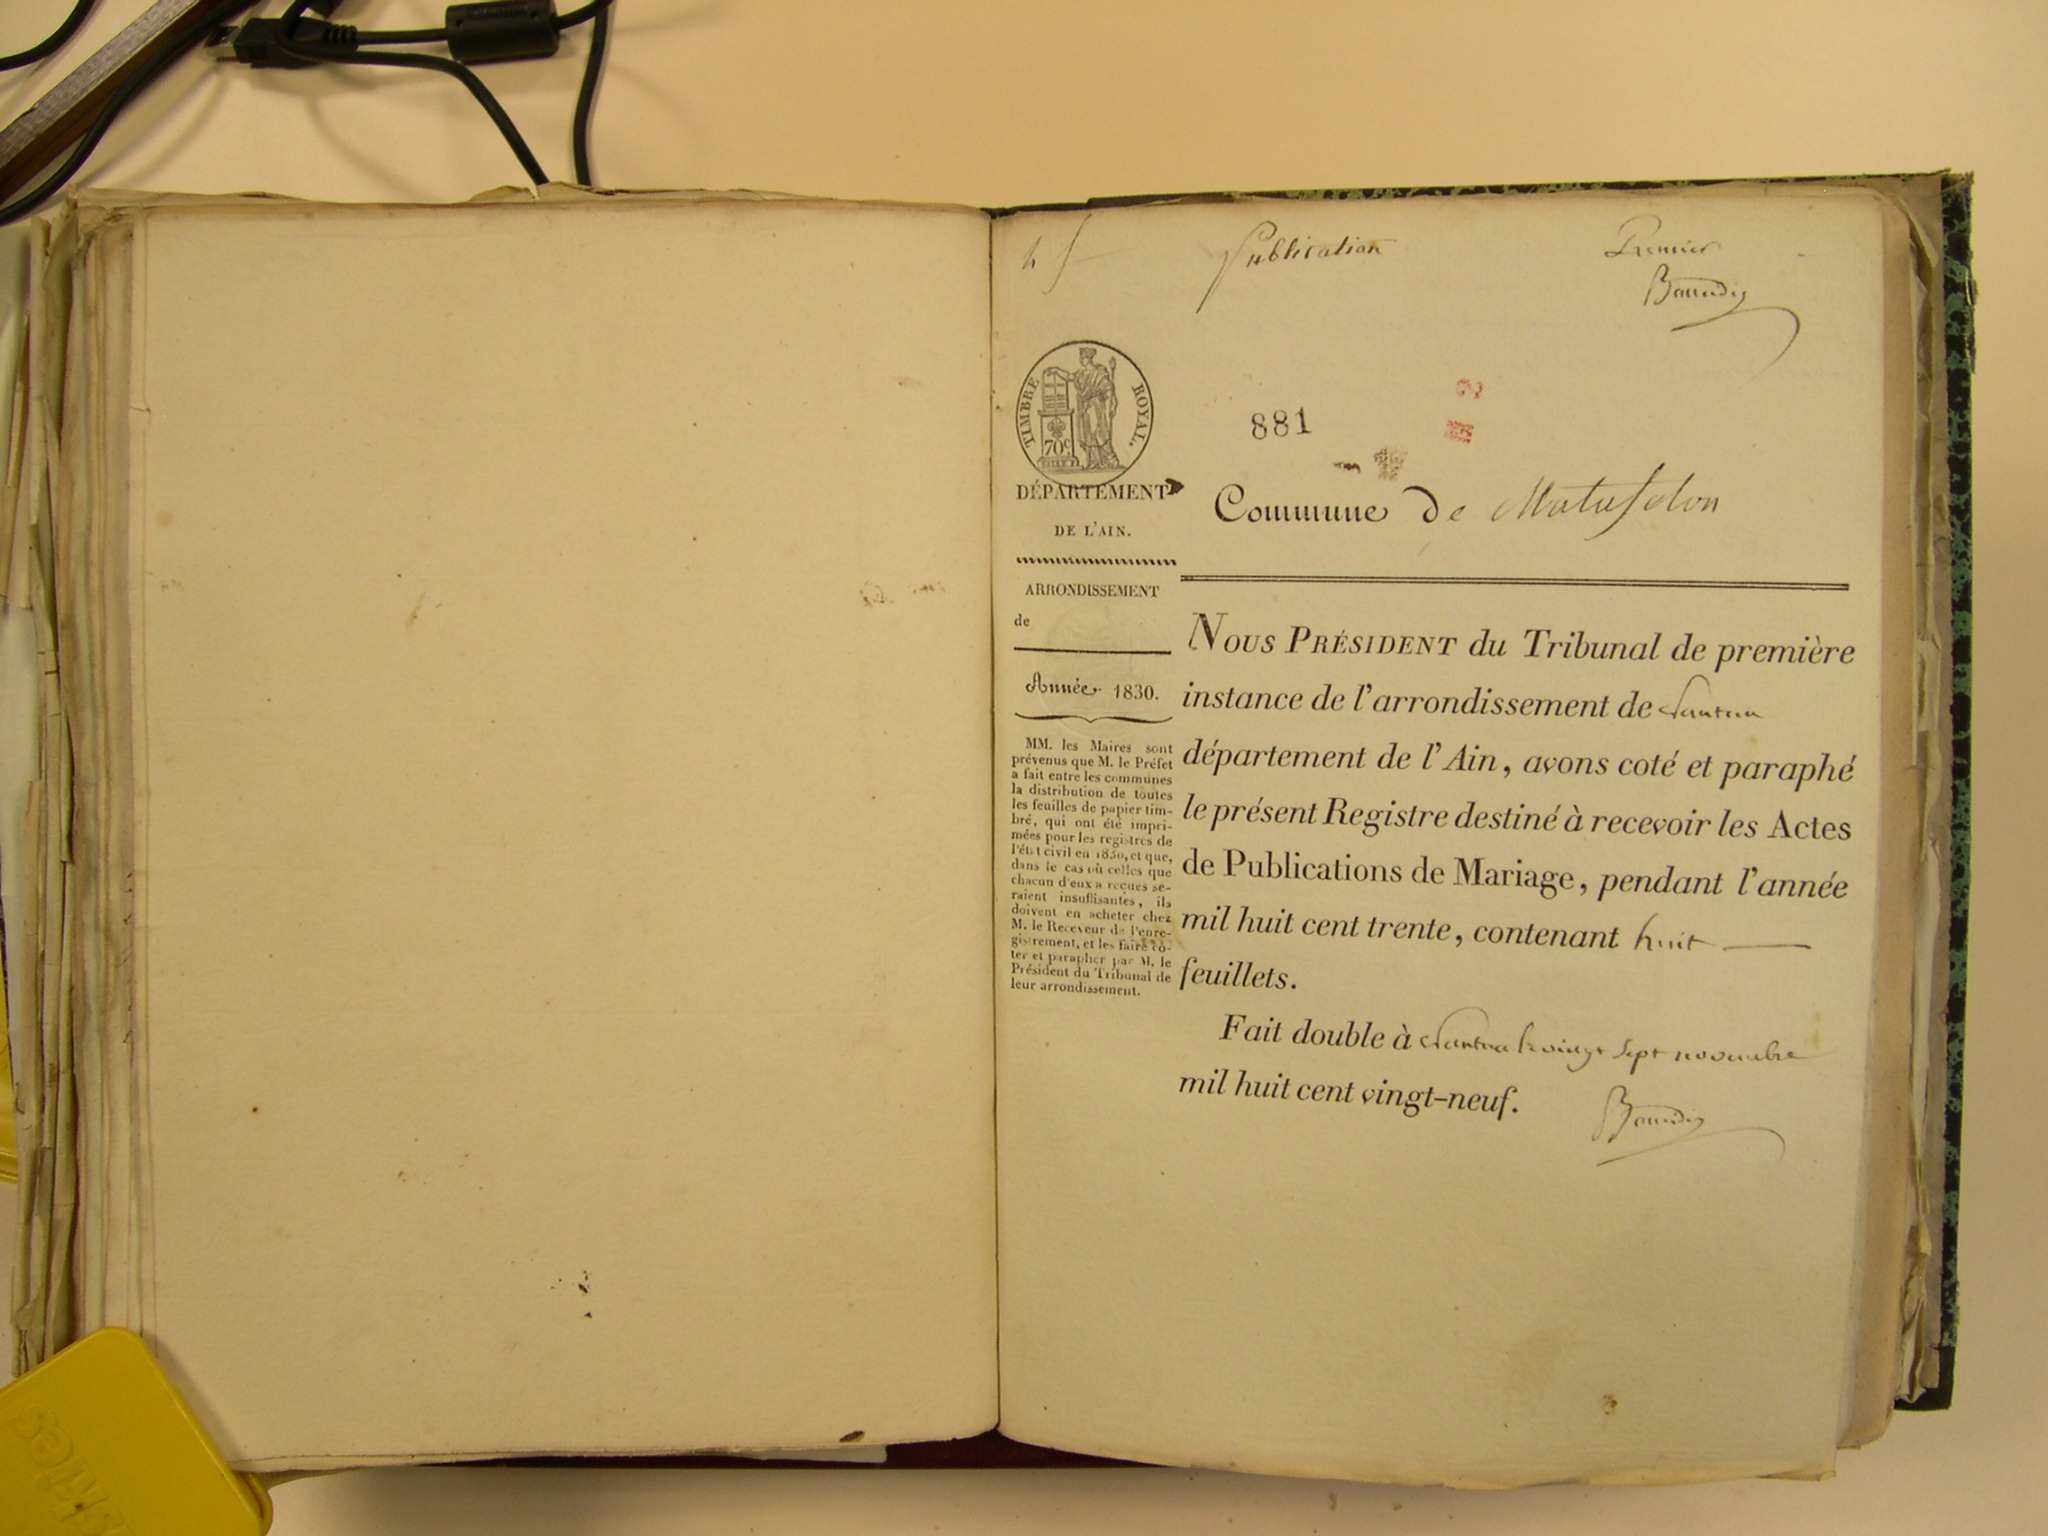 Publication
Premier
TIMBRE ROYAL.
70c
881
DÉPARTEMENT
DE L'AIN.
Commune de Matafelon
ARRONDISSEMENT
de
Année 1830.
MM. les Maires sont
prévenus que M. le Préfet
a fait entre les communes
la distribution de toutes
les feuilles de papier tim-
bré, qui ont été impri-
mées pour les registres de
l'état civil en 1830, et que,
dans le cas où celles que
chacun d'eux a reçues se-
raient insuffisantes, ils
doivent en acheter chez
M. le Receveur de l'enre-
gistrement, et les faire co-
ter et parapher par M. le
Président du Tribunal de
leur arrondissement.
NOUS PRÉSIDENT du Tribunal de première
instance de l'arrondissement de Nantua
département de l'Ain, avons coté et paraphé
le présent Registre destiné à recevoir les Actes
de Publications de Mariage, pendant l'année
mil huit cent trente, contenant huit
feuillets.
Fait double à Nantua le vingt sept novembre
mil huit cent vingt-neuf.